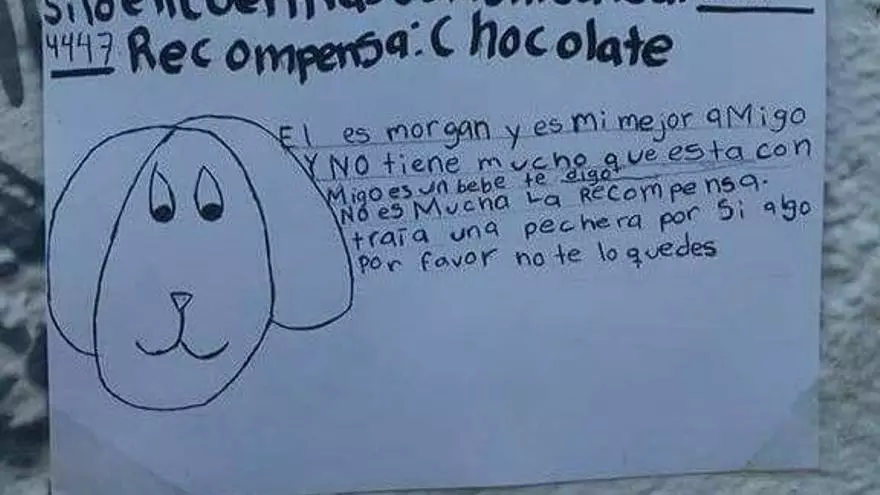 si lo encuentras comunicar
4447 Recompensa: Chocolate
El es morgan y es mi mejor aMigo
Y NO tiene mucho que esta con
Migo es un bebe te digo
NO es Mucha La Recompensa.
traía una pechera por si algo
por favor no te lo quedes